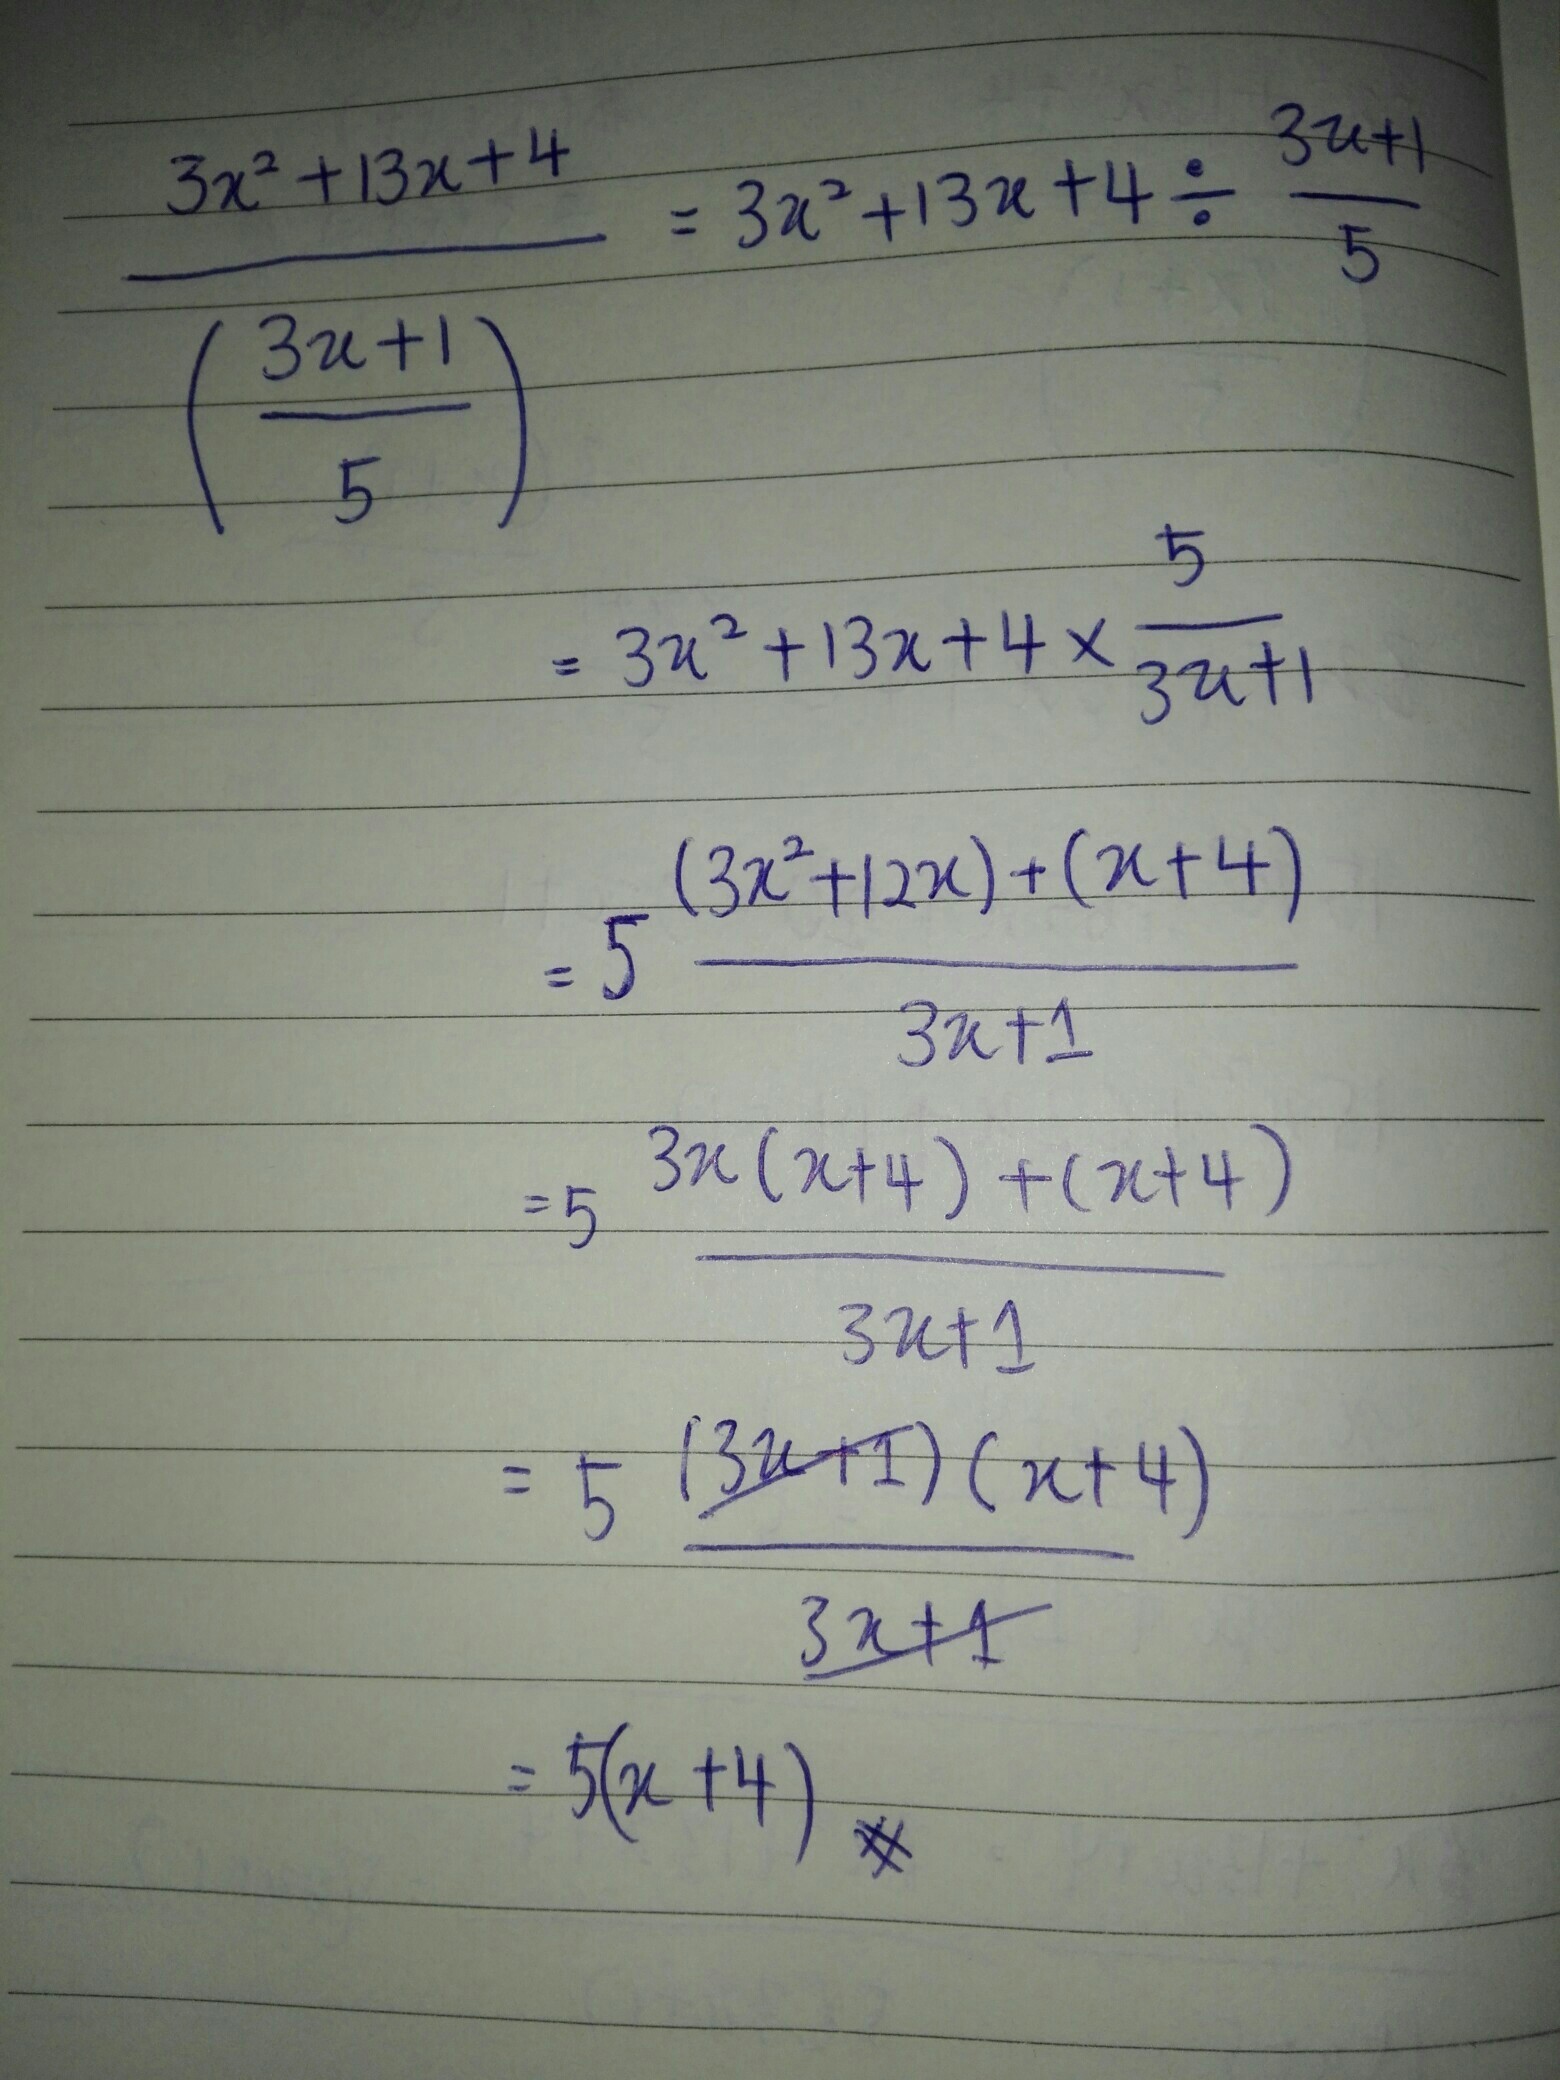 3x² + 13x + 4 / (3x+1 / 5) = 3x² + 13x + 4 ÷ 3x+1 / 5
= 3x² + 13x + 4 × 5 / 3x+1
= 5 (3x² + 12x) + (x + 4) / 3x + 1
= 5 3x(x+4) + (x+4) / 3x+1
= 5 (3x+1)(x+4) / 3x+1
= 5(x+4)